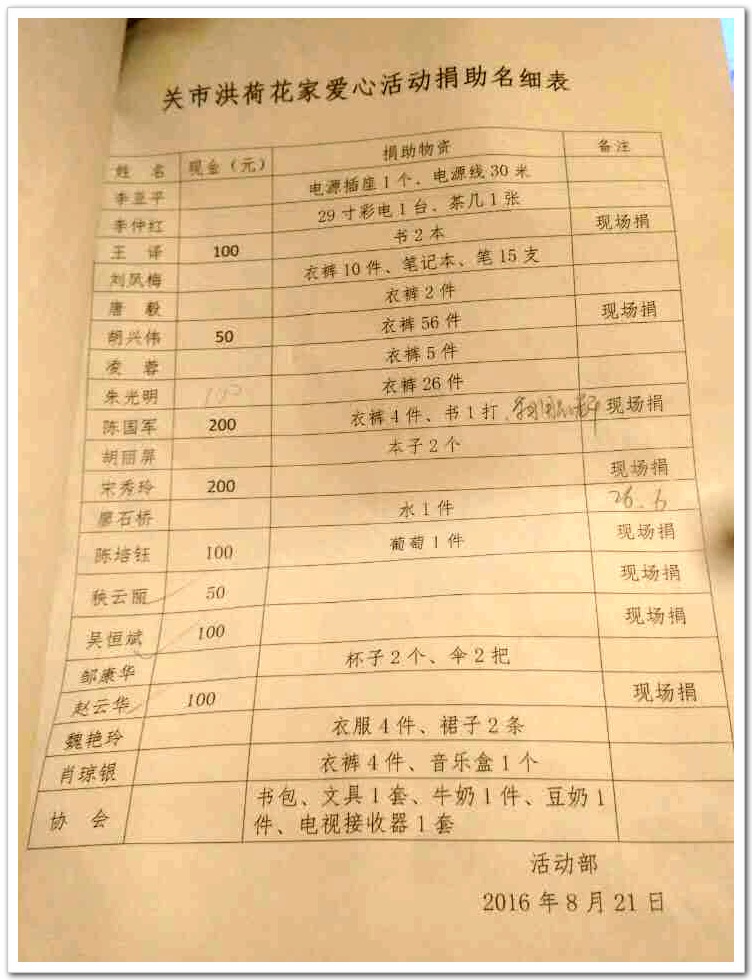 关市洪荷花家爱心活动捐助名细表
姓 名 现金（元） 捐助物资 备注
李亚平 电源插座1个、电源线30米
李仲红 29寸彩电1台、茶几1张
王 译 100 书2本 现场捐
刘凤梅 衣裤10件、笔记本、笔15支
唐 毅 衣裤2件
胡兴伟 50 衣裤56件 现场捐
凌 蓉 衣裤5件
朱光明 100 衣裤26件
陈国军 200 衣裤4件、书1打、 现场捐
胡丽屏 本子2个
宋秀玲 200 现场捐
廖石桥 水1件 26.6
陈培钰 100 葡萄1件 现场捐
秧云丽 50 现场捐
吴恒斌 100 现场捐
邹康华 杯子2个、伞2把
赵云华 100 现场捐
魏艳玲 衣服4件、裙子2条
肖琼银 衣裤4件、音乐盒1个
协 会 书包、文具1套、牛奶1件、豆奶1
件、电视接收器1套
活动部
2016年8月21日